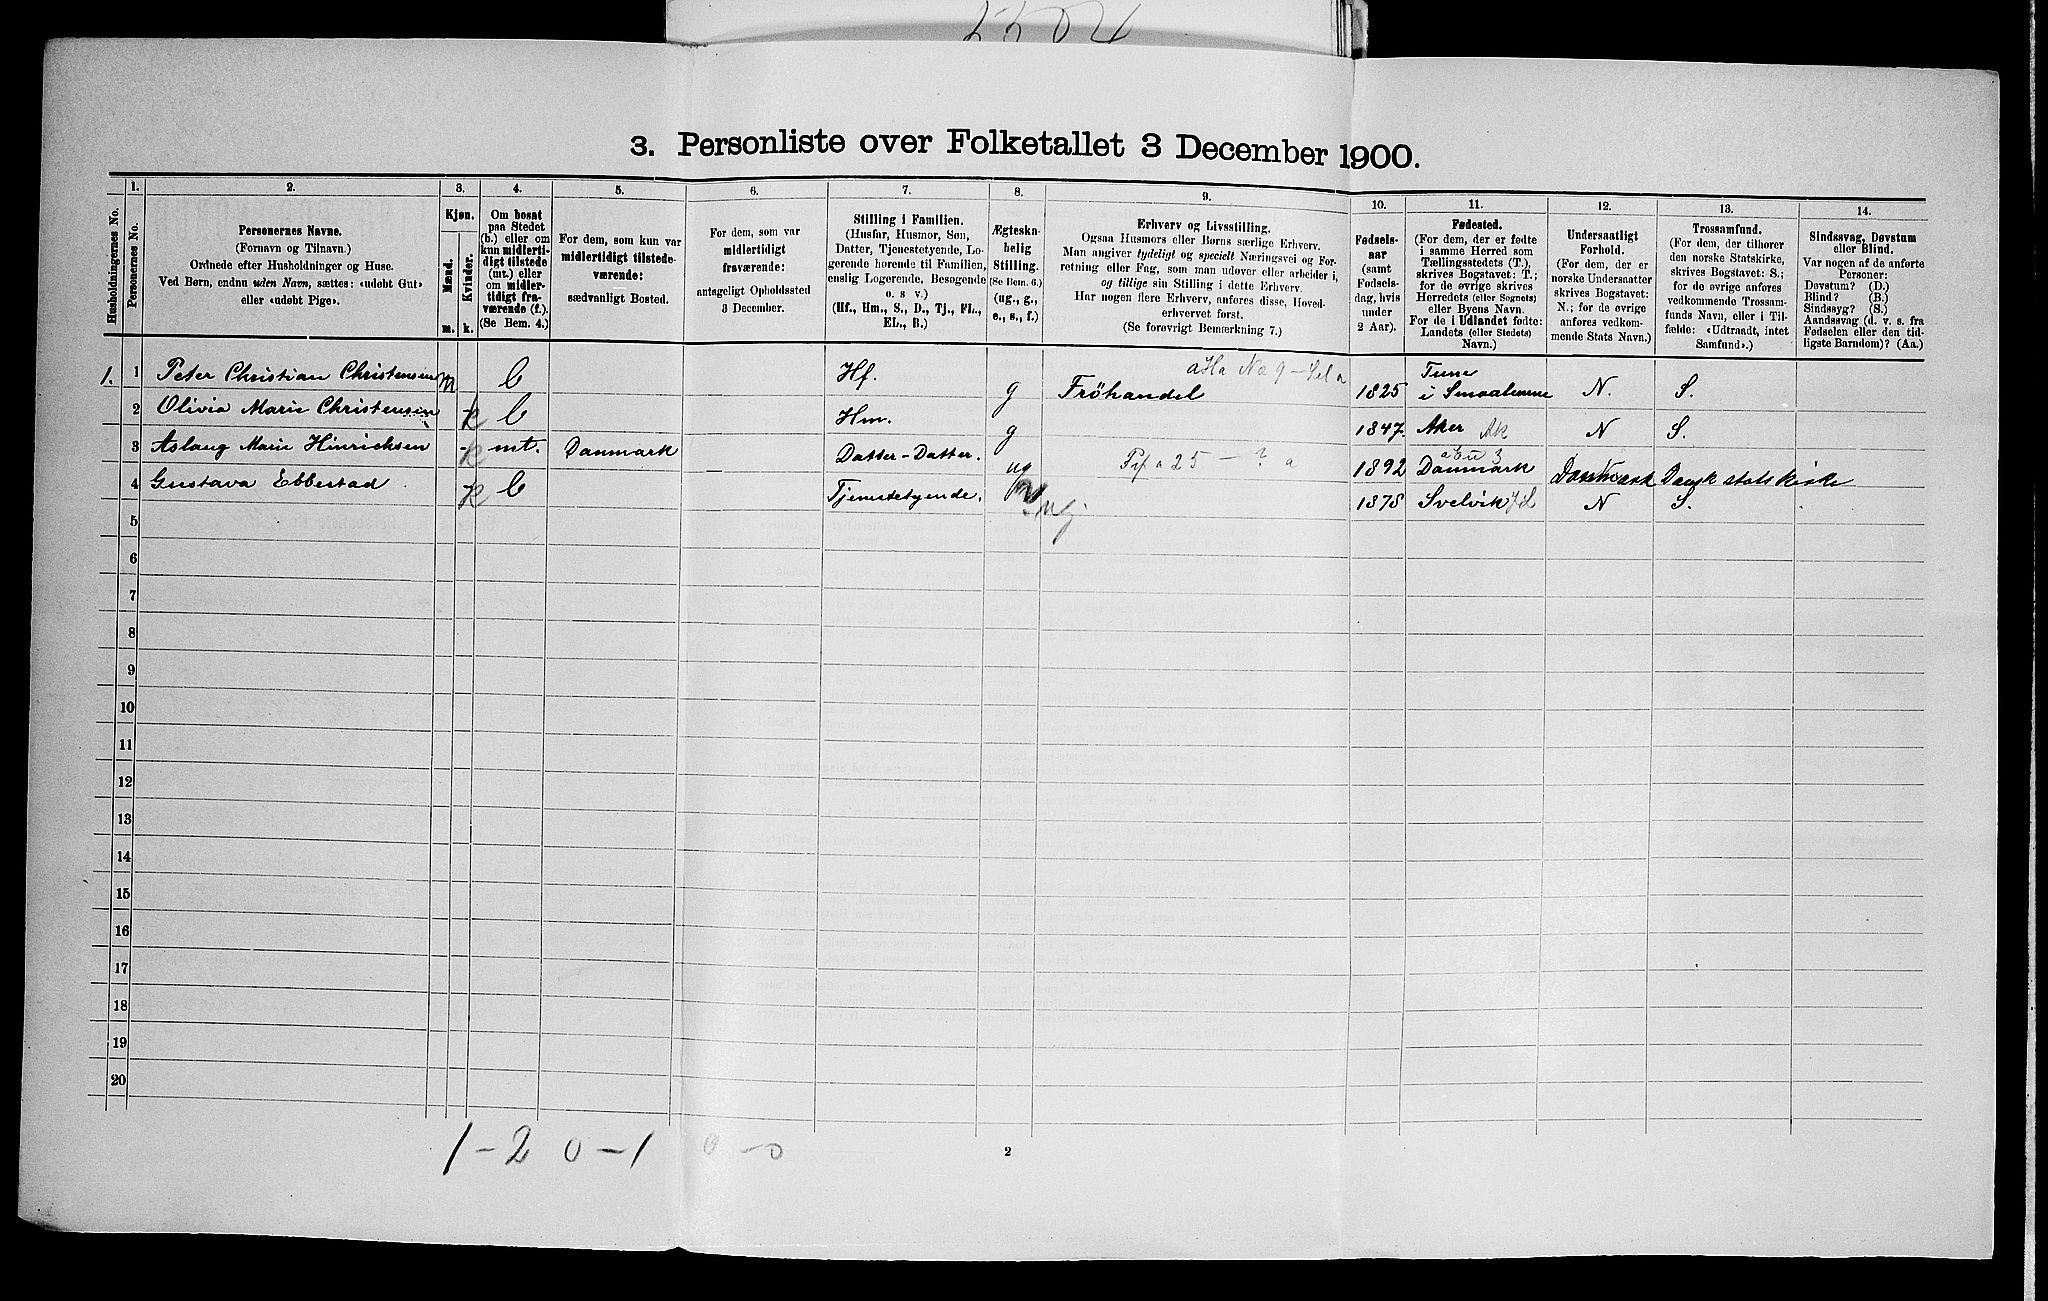 3. Personliste over Folketallet 3 December 1900.
Husholdningernes No.
1.
Personernes No.
2.
Personernes Navne.
(Fornavn og Tilnavn.)
Ordnede efter Husholdninger og Huse.
Ved Børn, endnu uden Navn, sættes: «udøbt Gut»
eller «udøbt Pige».
3.
Kjøn.
Mænd.
Kvinder.
m. k.
4.
Om bosat
paa Stedet
(b.) eller om
kun midlerti-
digt tilstede
(mt.) eller
om midler-
tidigt fra-
værende (f.).
(Se Bem. 4.)
5.
For dem, som kun var
midlertidigt tilstede-
værende:
sædvanligt Bosted.
6.
For dem, som var
midlertidigt
fraværende:
antageligt Opholdssted
3 December.
7.
Stilling i Familien.
(Husfar, Husmor, Søn,
Datter, Tjenestetyende, Lo-
gerende hørende til Familien,
enslig Logerende, Besøgende
o. s v.)
(Hf., Hm., S., D., Tj., FL.,
EL., B.)
8.
Ægteska-
belig
Stilling.
(Se Bem. 6.)
(ug., g.,
e., s., f.)
9.
Erhverv og Livsstilling.
Ogsaa Husmors eller Børns særlige Erhverv.
Man angiver tydeligt og specielt Næringsvei og For-
retning eller Fag, som man udøver eller arbeider i,
og tillige sin Stilling i dette Erhverv.
Har nogen flere Erhverv, anføres disse, Hoved-
erhvervet først.
(Se forøvrigt Bemærkning 7.)
10.
Fødsels-
aar
(samt
Fødsels-
dag, hvis
under
2 Aar).
11.
Fødested.
(For dem, der er fødte
i samme Herred som
Tællingsstedets (T.),
skrives Bogstavet: T.;
for de øvrige skrives
Herredets (eller Sognets)
eller Byens Navn.
For de i Udlandet fødte:
Landets (eller Stedets)
Navn.)
12.
Undersaatligt
Forhold.
(For de, der er
norske Undersaatter
skrives Bogstavet:
N.; for de øvrige
anføres vedkom-
mende Stats Navn.)
13.
Trossamfund.
(For dem, der tilhører
den norske Statskirke,
skrives Bogstavet: S.;
for de øvrige anføres
vedkommende Trossam-
funds Navn, eller i Til-
fælde: «Udtraadt, intet
Samfund».)
14.
Sindssvag, Døvstum
eller Blind.
Var nogen af de anførte
Personer:
Døvstum? (D.)
Blind? (B.)
Sindssyg? (S.)
Aandssvag (d. v. s. fra
Fødselen eller den tid-
ligste Barndom)? (Aa.)
1. 1 Peter Christian Christensen m b Hf. g Fröhandel 1825 Tune i Smaalenene N. S.
2 Olivia Marie Christensen k b Hm. g 1847. Aker Ak N S.
3 Aslaug Marie Hinrichsen k mt. Danmark Datter-Datter. ug 1892 Danmark Danmark Dansk statskirke
4 Gustava Ebbestad k b Tjenestetyende. ug. 1878 Svelvik N S.
5
6
7
8
9
10
11
12
13
14
15
16
17
18
19
20
1-2 0-1 0-0
2